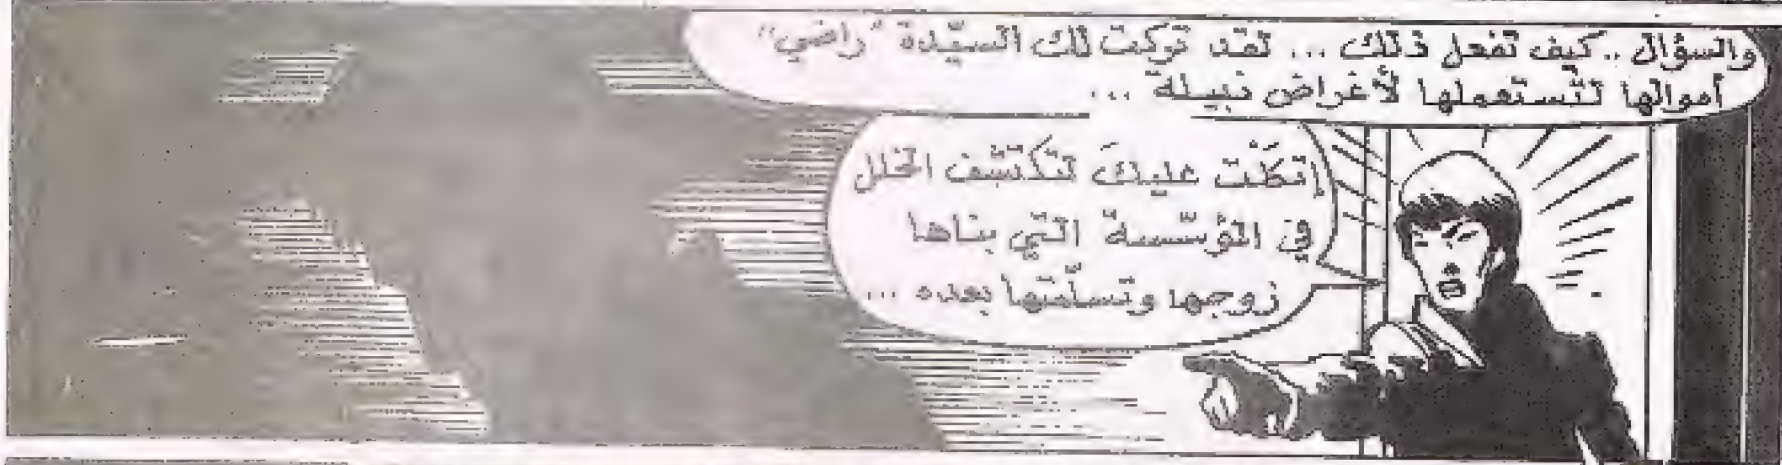 والسؤال .. كيف تفعل ذلك ... لقد تركت لك السيّدة "راضي"
أموالها لتستعملها لأغراض نبيلة ...
إتكلَت عليكَ لتكتشف الخلل
في المؤسّسة التي بناها
زوجها وتسلّمتها بعده ...